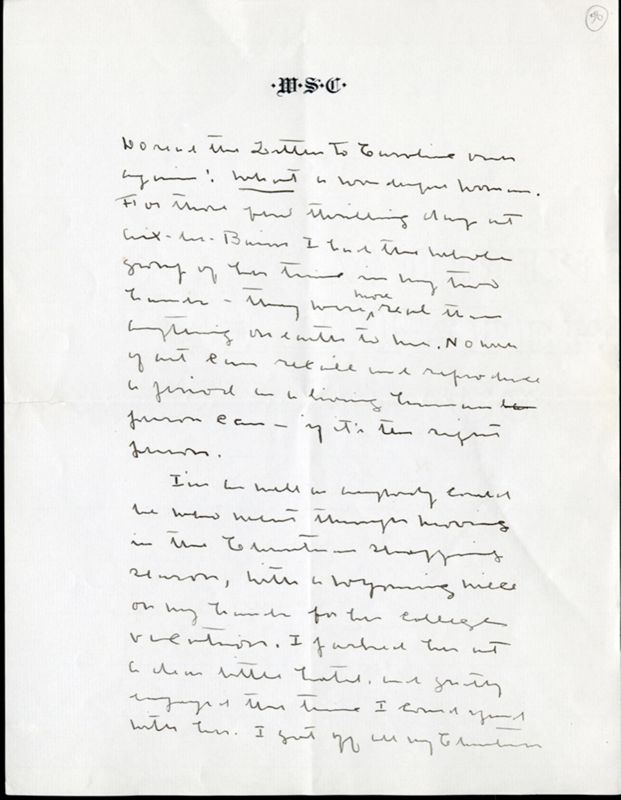 90
·W·S·C·
Do read the Letter to Caroline over
again! What a wonderful woman.
For those few thrilling days at
Aix-les-Bains I had the whole
group of her time in my two
hands - they were more real than
anything on earth to me. No work
of art can recall and reproduce
a period as a living human
person can - if it's the right
person.
I'm as well as anybody could
be who went through moving
in the Christmas shopping
season, with a Wyoming niece
on my hands for her college
vacation. I parked her at
a dear little hotel, and greatly
enjoyed the time I could spend
with her. I got off all my Christmas